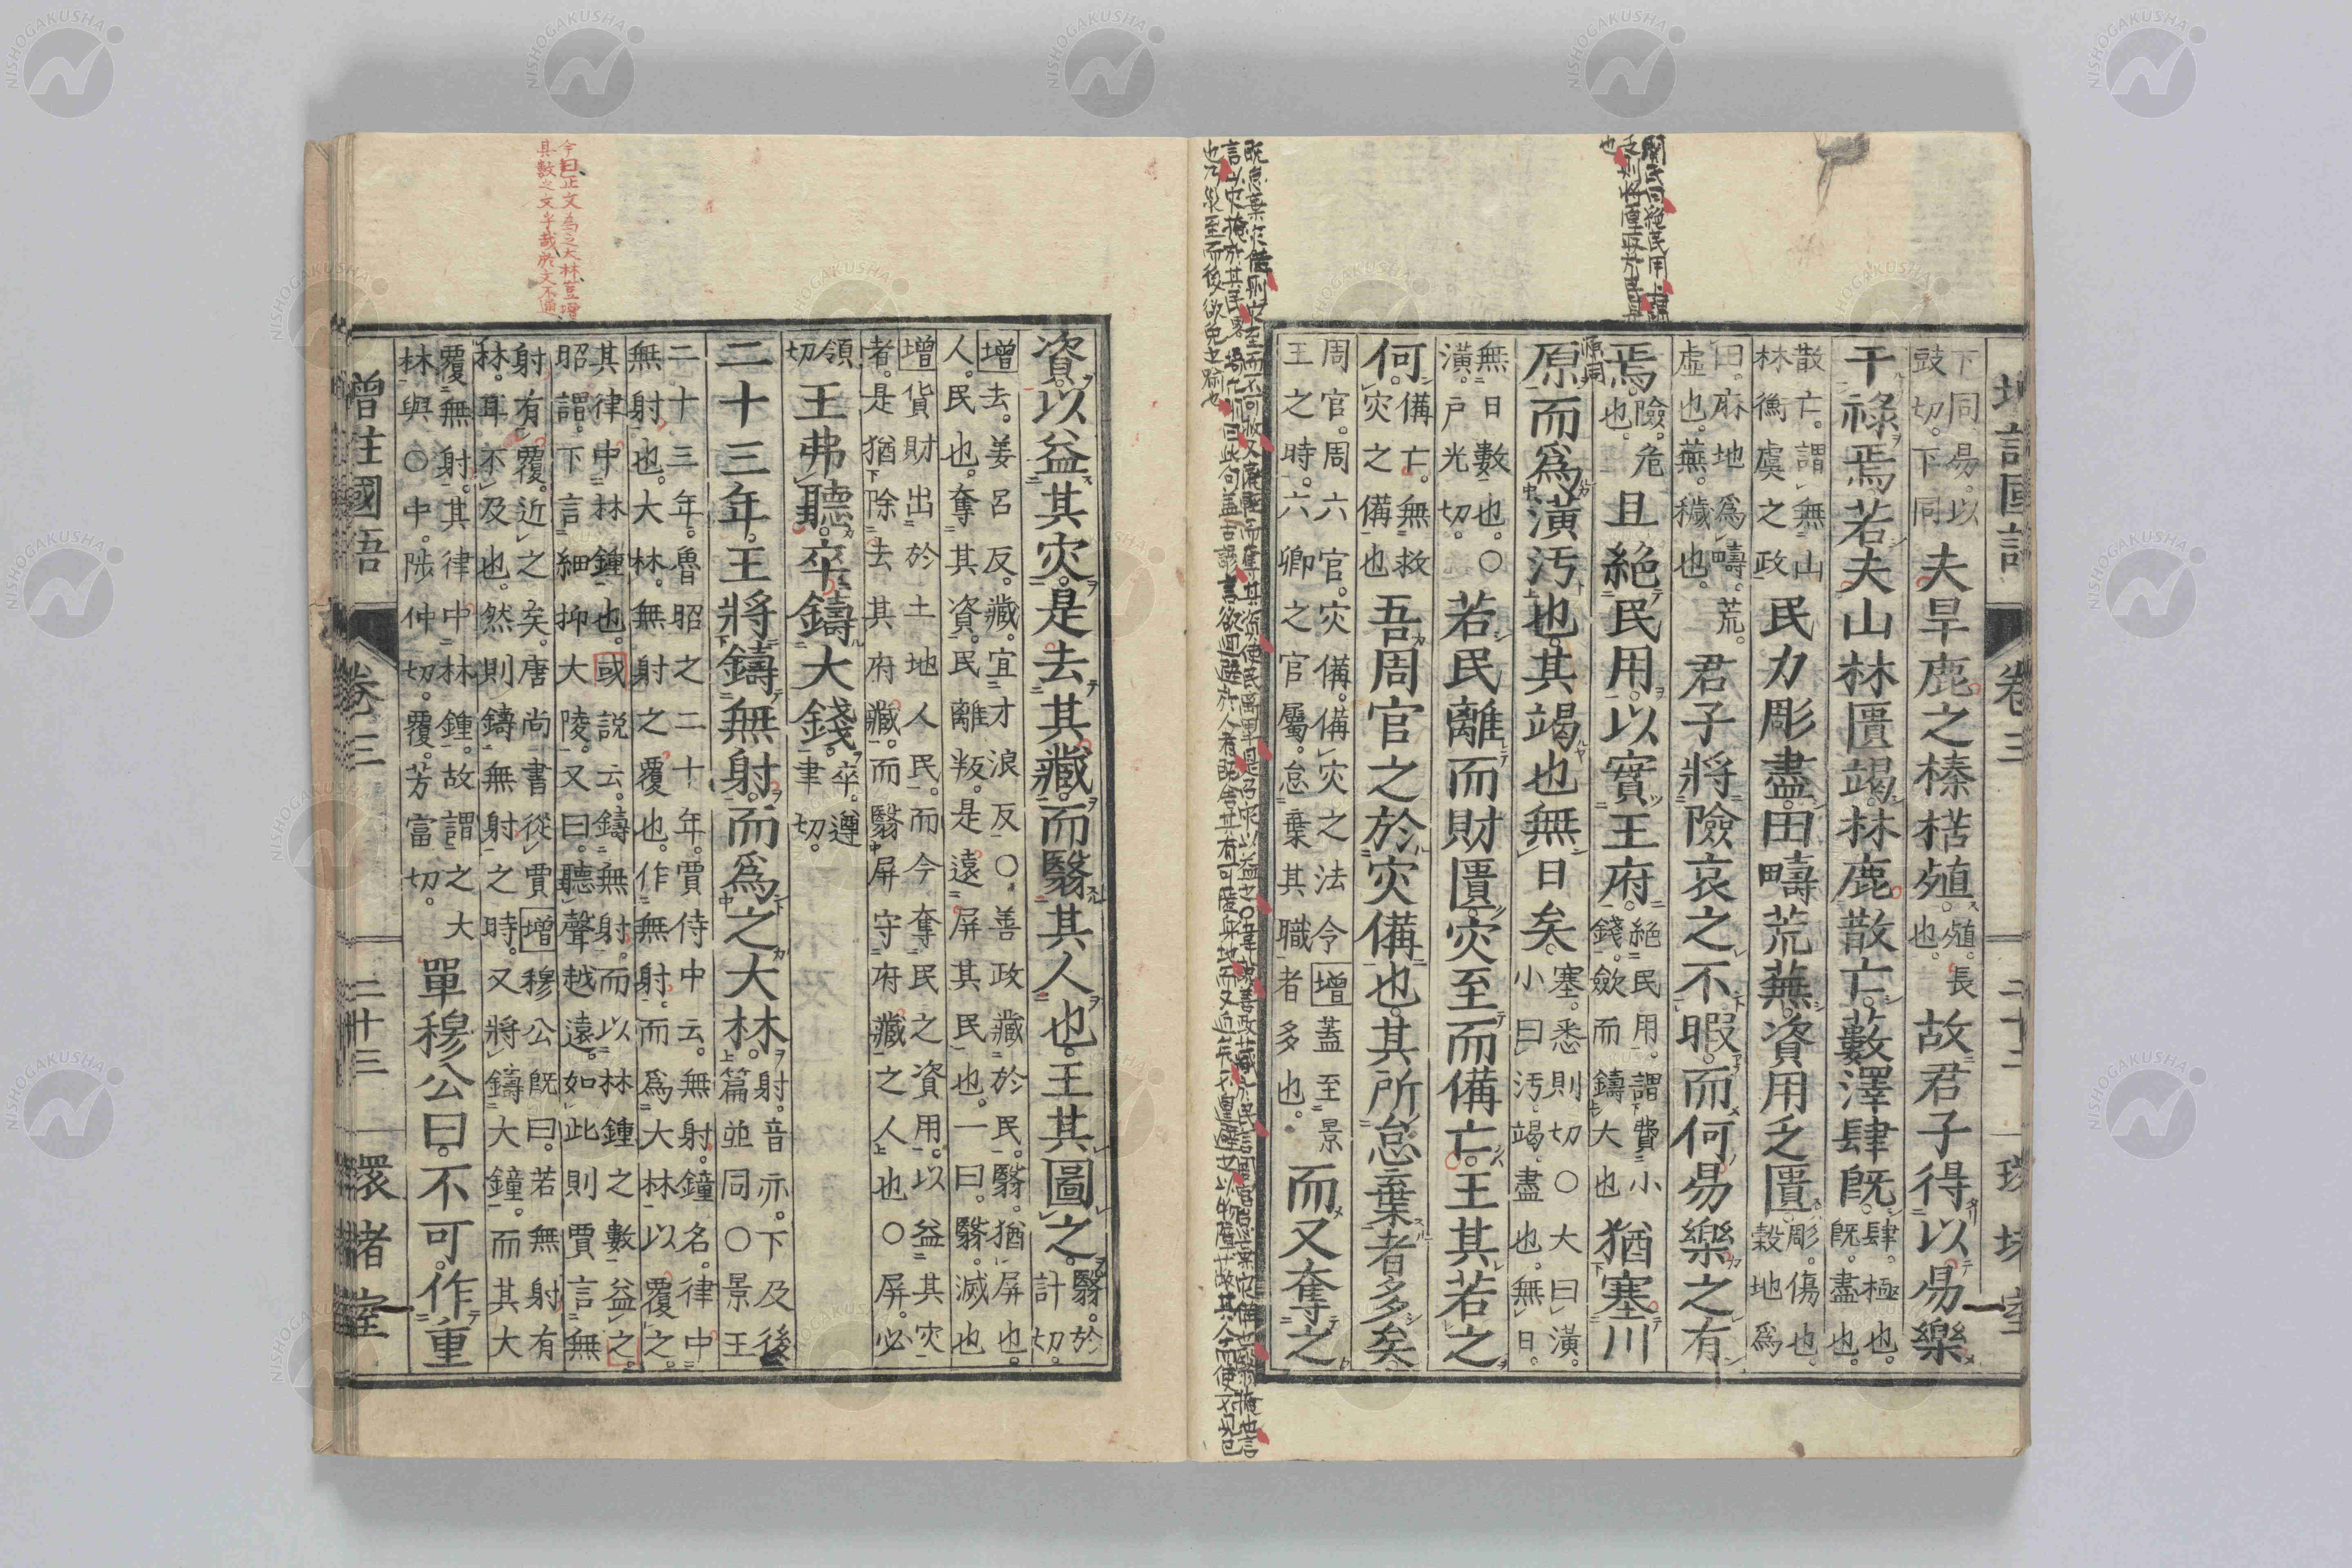 下同易以
豉切下同
夫旱鹿之榛楛殖
殖長
也
故君子得以易樂
干祿焉若夫山林匱竭林鹿散亡藪澤肆旣
肆極也
旣盡也
散亡謂無山
林衡虞之政
民力彫盡田疇荒蕪資用乏匱
彫傷也
穀地爲
田麻地爲疇荒
虛也蕪穢也
君子將險哀之不暇而何易樂之有
焉
險危
也
且絕民用以實王府
絕民用謂費小
錢斂而鑄大也
猶塞川
源同
原而爲潢汚也其竭也無日矣
塞悉則切○大曰潢
小曰汚竭盡也無日
無日數也○
潢戸光切
若民離而財匱灾至而備亡王其若之
何
備亡無救
灾之備也
吾周官之於灾備也其所怠棄者多矣
周官周六官灾備備灾之法令
增
蓋至景
王之時六卿之官屬怠棄其職者多也
而又奪之
資以益其灾是去其藏而翳其人也王其圖之
翳於
計切
增
去羌呂反藏宜才浪反○善政藏於民翳猶屏也
人民也奪其資民離叛是遠屏其民也一曰翳滅也
增
貨財出於土地人民而今奪民之資用以益其灾
者是猶除去其府藏而翳屏守府藏之人也○屏必
領
切
王弗聽卒鑄大錢
卒遵
聿切
二十三年王將鑄無射而爲之大林
射音亦下及後
上篇並同○景王
二十三年魯昭之二十年賈侍中云無射鐘名律中
無射也大林無射之覆也作無射而爲大林以覆之
其律中林鍾也或説云鑄無射而以林鍾之數益之
昭謂下言細抑大陵又曰聽聲越遠如此則賈言無
射有覆近之矣唐尚書從賈
增
穆公旣曰若無射有
林耳不及也然則鑄無射之時又將鑄大鐘而其大
覆無射其律中林鍾故謂之大
林與○中陟仲切覆芳富切
單穆公曰不可作重
增註國語
卷三
二十三
環堵室
卷三
二十二
今曰正文為之大林豈増
其數之文乎哉於文不通